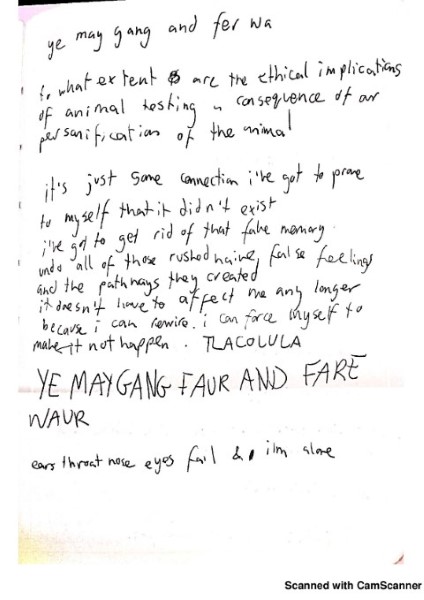 ye may gang and fer wa
to what extent are the ethical implications
of animal testing a consequence of our
personification of the animal
it's just some connection i've got to prove
to myself that it didn't exist
i've got to get rid of that fake memory.
undo all of those rushed naive, false feelings
and the pathways they created
it doesn't have to affect me any longer
because i can rewire. i can force myself to
make it not happen. TLACOLULA
YE MAY GANG FAUR AND FARE
WAUR
ears throat nose eyes fail & i'm alone
Scanned with CamScanner